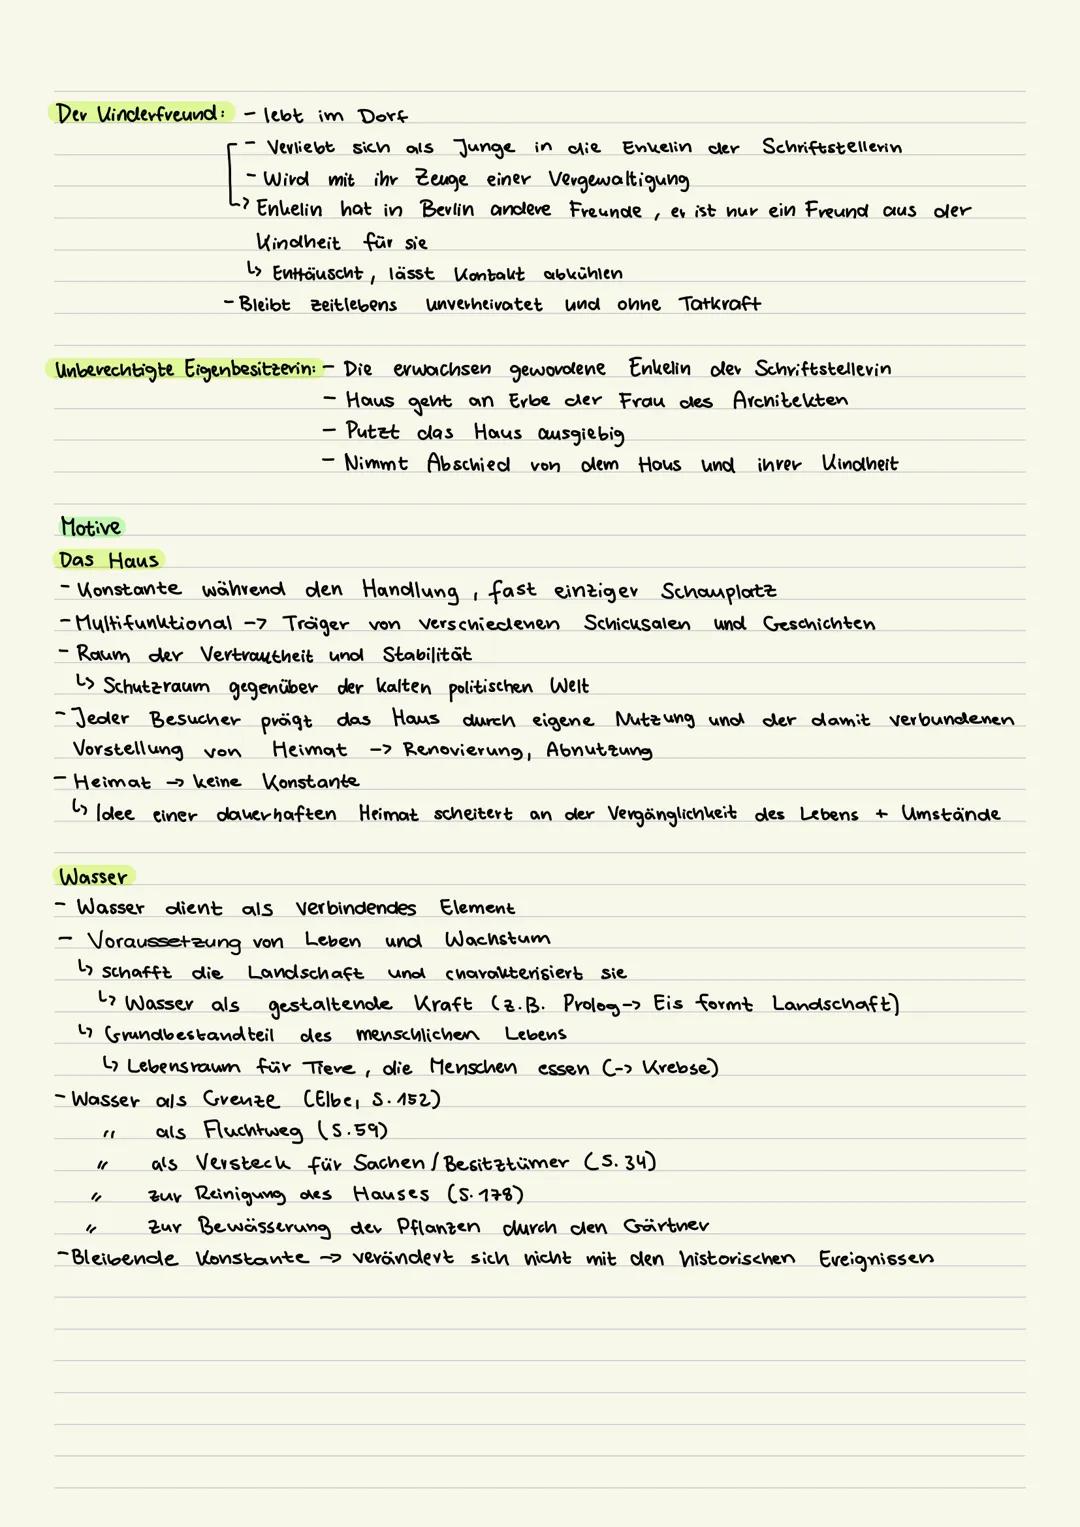 Der Kinderfreund: - lebt im Dorf
- Verliebt sich als Junge in die Enkelin der Schriftstellerin
- Wird mit ihr Zeuge einer Vergewaltigung
-> Enkelin hat in Berlin andere Freunde, er ist nur ein Freund aus der
Kindheit für sie
↳ Enttäuscht, lässt Kontakt abkühlen
- Bleibt zeitlebens unverheiratet und ohne Tatkraft
Unberechtigte Eigenbesitzerin: - Die erwachsen gewordene Enkelin der Schriftstellerin
- Haus geht an Erbe der Frau des Architekten
- Putzt das Haus ausgiebig
- Nimmt Abschied von dem Haus und ihrer Kindheit
Motive
Das Haus
- Konstante während den Handlung, fast einziger Schauplatz
- Multifunktional -> Träger von verschiedenen Schicksalen und Geschichten
- Raum der Vertrautheit und Stabilität
↳ Schutzraum gegenüber der kalten politischen Welt
- Jeder Besucher prägt das Haus durch eigene Nutzung und der damit verbundenen
Vorstellung von Heimat -> Renovierung, Abnutzung
- Heimat -> keine Konstante
↳ Idee einer dauerhaften Heimat scheitert an der Vergänglichkeit des Lebens + Umstände
Wasser
- Wasser dient als verbindendes Element
- Voraussetzung von Leben und Wachstum
↳ schafft die Landschaft und charakterisiert sie
↳ Wasser als gestaltende Kraft (z.B. Prolog -> Eis formt Landschaft)
↳ Grundbestandteil des menschlichen Lebens
↳ Lebensraum für Tiere, die Menschen essen (-> Krebse)
- Wasser als Grenze (Elbe, S. 152)
" als Fluchtweg (S. 59)
" als Versteck für Sachen / Besitztümer (S. 34)
" zur Reinigung des Hauses (S. 178)
" zur Bewässerung der Pflanzen durch den Gärtner
- Bleibende Konstante -> verändert sich nicht mit den historischen Ereignissen